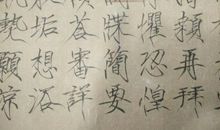 顙再拜
懼恐惶
牒簡要
答審詳
垢想浴
熱願涼